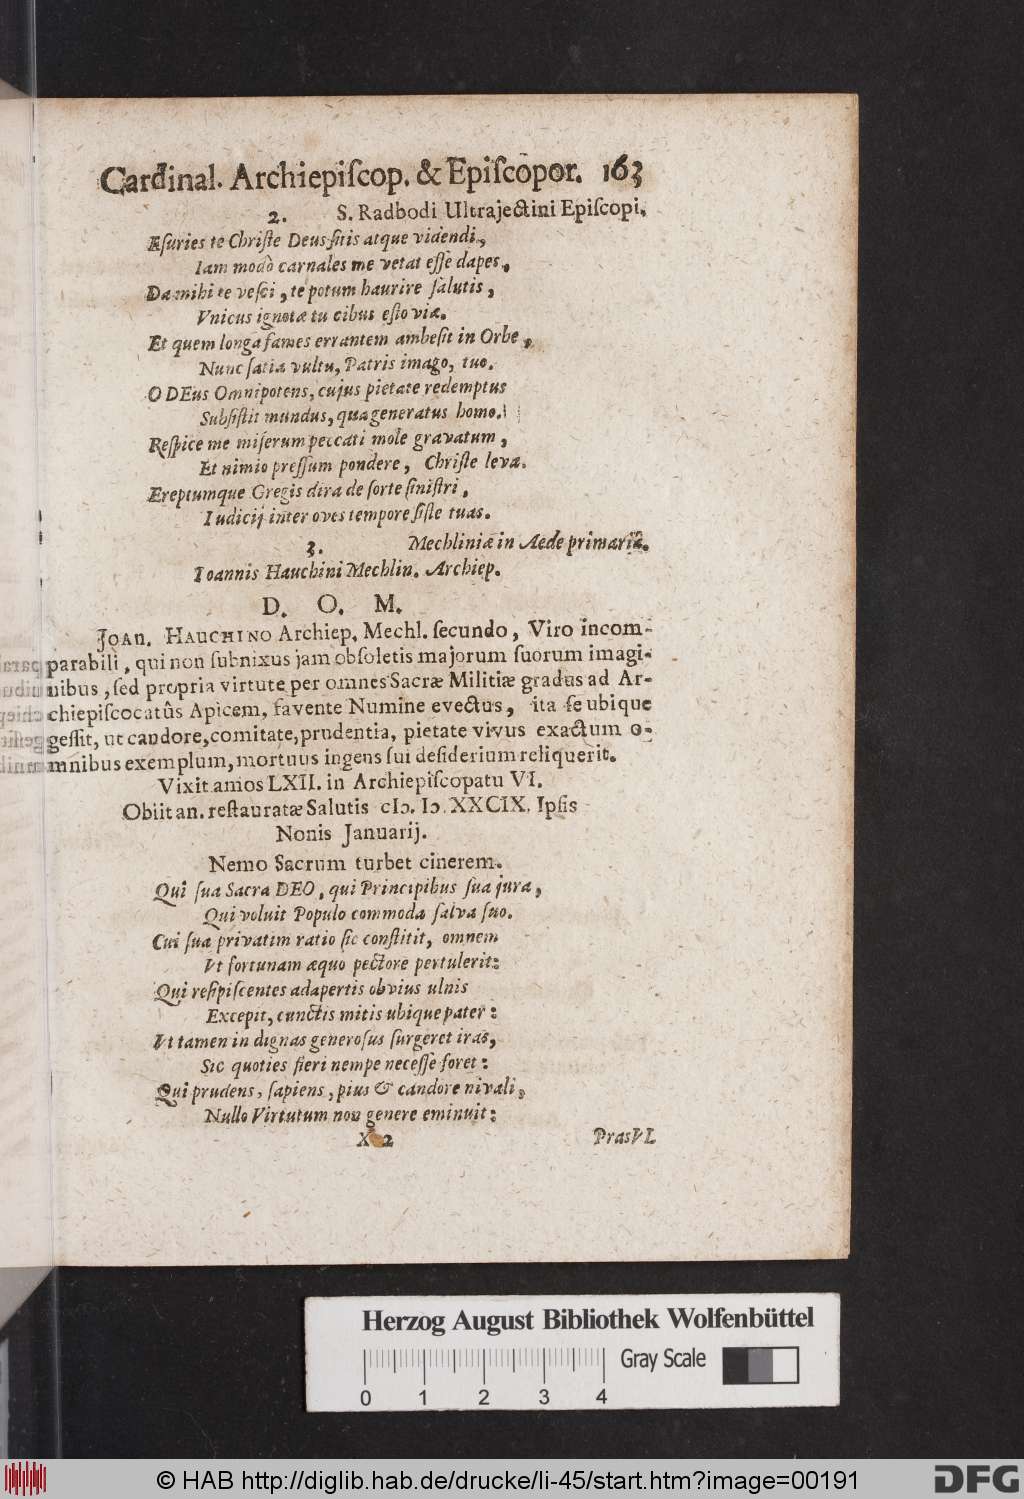 Cardinal. Archiepiſcop. & Epiſcopor. 163
2. S. Radbodi Ultrajectini Epiſcopi.
Eſuries te Chriſte Deus ſitis atque videndi,
Iam modò carnales me vetat eſſe dapes.
Da mihi te veſci, te potum haurire ſalutis,
Vnicus ignotæ tu cibus eſto viæ.
Et quem longa fames errantem ambeſit in Orbe,
Nunc ſatia vultu, Patris imago, tuo.
O DEus Omnipotens, cujus pietate redemptus
Subſiſtit mundus, qua generatus homo.
Reſpice me miſerum peccati mole gravatum,
Et nimio preſſum pondere, Chriſte leva.
Ereptumque Gregis dira de ſorte ſiniſtri,
Iudicij inter oves tempore ſiſte tuas.
3. Mechliniæ in Aede primariâ.
Ioannis Hauchini Mechlin. Archiep.
D. O. M.
JOAN. HAUCHINO Archiep. Mechl. ſecundo, Viro incom-
parabili, qui non ſubnixus jam obſoletis majorum ſuorum imagi-
nibus, ſed propria virtute per omnes Sacræ Militiæ gradus ad Ar-
chiepiſcocatûs Apicem, favente Numine evectus, ita ſe ubique
geſſit, ut candore, comitate, prudentia, pietate vivus exactum o-
mnibus exemplum, mortuus ingens ſui deſiderium reliquerit.
Vixit annos LXII. in Archiepiſcopatu VI.
Obiit an. reſtauratæ Salutis cIↄ. Iↄ. XXCIX. Ipſis
Nonis Januarij.
Nemo Sacrum turbet cinerem.
Qui ſua Sacra DEO, qui Principibus ſua jura,
Qui voluit Populo commoda ſalva ſuo.
Cui ſua privatim ratio ſic conſtitit, omnem
Vt fortunam æquo pectore pertulerit:
Qui reſipiſcentes adapertis obvius ulnis
Excepit, cunctis mitis ubique pater:
Vt tamen in dignas generoſus ſurgeret iras,
Sic quoties fieri nempe neceſſe foret:
Qui prudens, ſapiens, pius & candore nivali,
Nullo Virtutum non genere eminuit:
X 2 PrasVL
Herzog August Bibliothek Wolfenbüttel
Gray Scale
0 1 2 3 4
© HAB http://diglib.hab.de/drucke/li-45/start.htm?image=00191
DFG